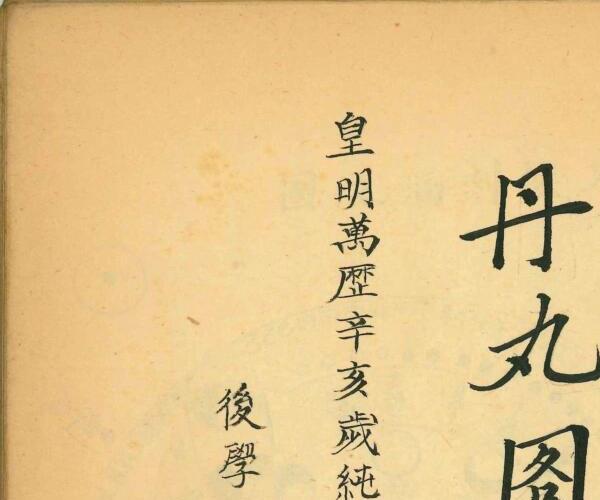 丹丸图
皇明萬歷辛亥歲純
後學